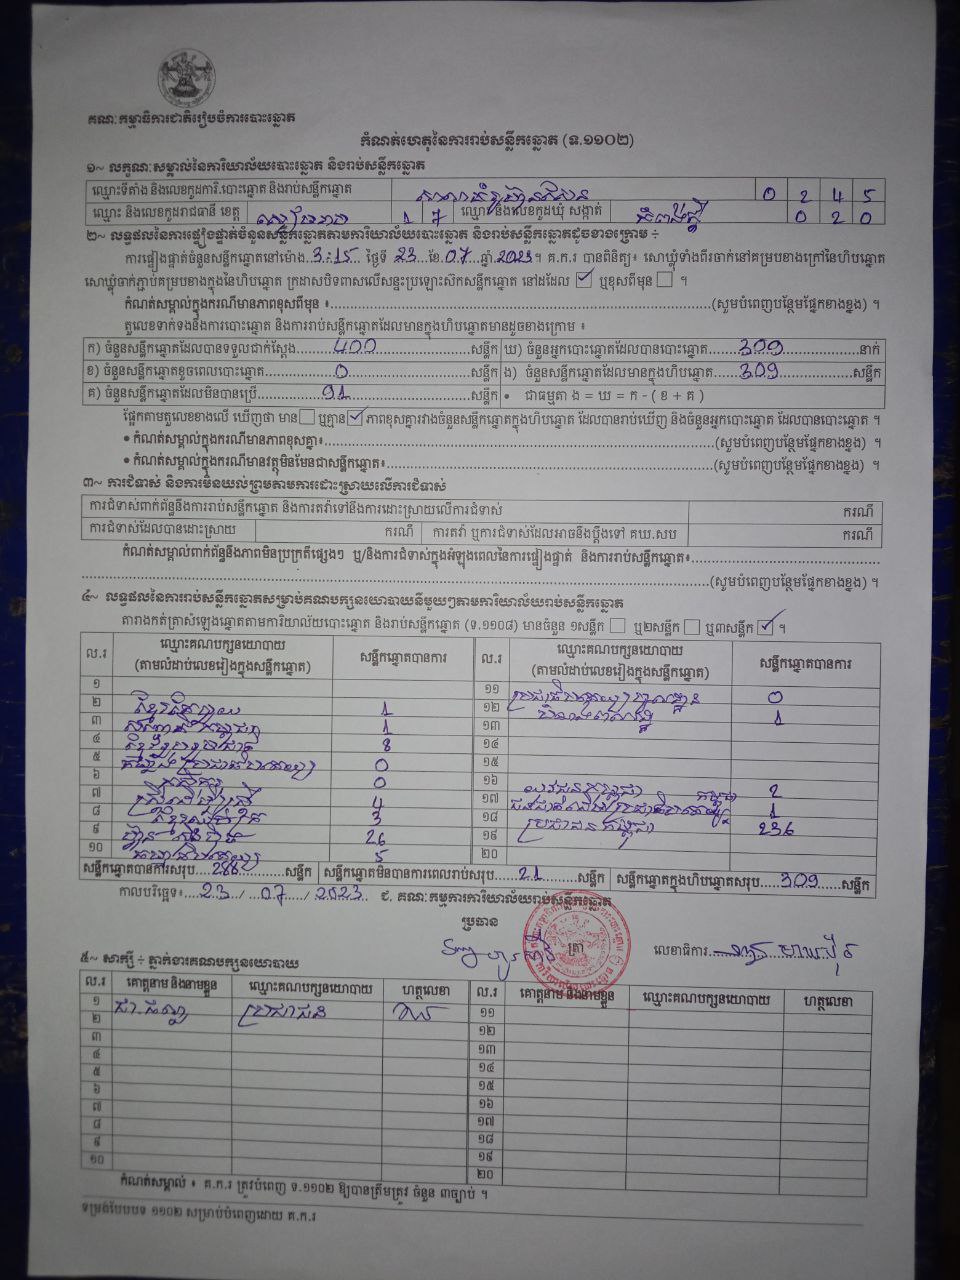 គណៈកម្មាធិការជាតិរៀបចំការបោះឆ្នោត
កំណត់ហេតុនៃការរាប់សន្លឹកឆ្នោត (ទ.១១០២)
១~ លក្ខណៈសម្គាល់នៃការិយាល័យបោះឆ្នោត និងរាប់សន្លឹកឆ្នោត
ឈ្មោះទីតាំង និងលេខកូដការិ.បោះឆ្នោត និងរាប់សន្លឹកឆ្នោត 0 2 4 5
ឈ្មោះ និងលេខកូដរាជធានី ខេត្ត សៀមរាប 1 7 ឈ្មោះ និងលេខកូដឃុំ សង្កាត់ 0 2 0
២~ លទ្ធផលនៃការផ្ទៀងផ្ទាត់ចំនួនសន្លឹកឆ្នោតតាមការិយាល័យបោះឆ្នោត និងរាប់សន្លឹកឆ្នោតដូចខាងក្រោម ÷
ការផ្ទៀងផ្ទាត់ចំនួនសន្លឹកឆ្នោតនៅម៉ោង 3:15 ថ្ងៃទី 23 ខែ 07 ឆ្នាំ 2023។ គ.ក.រ បានពិនិត្យ៖ សោឃ្លុំទាំងពីរចាក់នៅគម្របខាងក្រៅនៃហិបឆ្នោត
សោឃ្លុំចាក់ភ្ជាប់គម្របខាងក្នុងនៃហិបឆ្នោត ក្រដាសបិទពាសលើសន្ទះប្រឡោះស៊កសន្លឹកឆ្នោត នៅដដែល ☑ ឬខុសពីមុន ☐ ។
កំណត់សម្គាល់ក្នុងករណីមានភាពខុសពីមុន ៖ (សូមបំពេញបន្ថែមផ្នែកខាងខ្នង) ។
តួលេខទាក់ទងនឹងការបោះឆ្នោត និងការរាប់សន្លឹកឆ្នោតដែលមានក្នុងហិបឆ្នោតមានដូចខាងក្រោម ៖
ក) ចំនួនសន្លឹកឆ្នោតដែលបានទទួលជាក់ស្តែង 400 សន្លឹក ឃ) ចំនួនអ្នកបោះឆ្នោតដែលបានបោះឆ្នោត 309 នាក់
ខ) ចំនួនសន្លឹកឆ្នោតខូចពេលបោះឆ្នោត 0 សន្លឹក ង) ចំនួនសន្លឹកឆ្នោតដែលមានក្នុងហិបឆ្នោត 309 សន្លឹក
គ) ចំនួនសន្លឹកឆ្នោតដែលមិនបានប្រើ 91 សន្លឹក • ជាធម្មតា ង = ឃ = ក - ( ខ + គ )
ផ្អែកតាមតួលេខខាងលើ ឃើញថា មាន ☐ ឬគ្មាន ☑ ភាពខុសគ្នារវាងចំនួនសន្លឹកឆ្នោតក្នុងហិបឆ្នោត ដែលបានរាប់ឃើញ និងចំនួនអ្នកបោះឆ្នោត ដែលបានបោះឆ្នោត ។
• កំណត់សម្គាល់ក្នុងករណីមានភាពខុសគ្នា៖ (សូមបំពេញបន្ថែមផ្នែកខាងខ្នង) ។
• កំណត់សម្គាល់ក្នុងករណីមានវត្ថុមិនមែនជាសន្លឹកឆ្នោត៖ (សូមបំពេញបន្ថែមផ្នែកខាងខ្នង) ។
៣~ ការជំទាស់ និងការមិនយល់ព្រមតាមការដោះស្រាយលើការជំទាស់
ការជំទាស់ពាក់ព័ន្ធនឹងការរាប់សន្លឹកឆ្នោត និងការតវ៉ាទៅនឹងការដោះស្រាយលើការជំទាស់ ករណី
ការជំទាស់ដែលបានដោះស្រាយ ករណី ការតវ៉ា ឬការជំទាស់ដែលអាចនឹងប្តឹងទៅ គឃ.សប ករណី
កំណត់សម្គាល់ពាក់ព័ន្ធនឹងភាពមិនប្រក្រតីផ្សេងៗ ឬ/និងការជំទាស់ក្នុងអំឡុងពេលនៃការផ្ទៀងផ្ទាត់ និងការរាប់សន្លឹកឆ្នោត៖
(សូមបំពេញបន្ថែមផ្នែកខាងខ្នង) ។
៤~ លទ្ធផលនៃការរាប់សន្លឹកឆ្នោតសម្រាប់គណបក្សនយោបាយនីមួយៗតាមការិយាល័យរាប់សន្លឹកឆ្នោត
តារាងកត់ត្រាសំឡេងឆ្នោតតាមការិយាល័យបោះឆ្នោត និងរាប់សន្លឹកឆ្នោត (ទ.១១០៨) មានចំនួន ១សន្លឹក ☐ ឬ២សន្លឹក ☐ ឬ៣សន្លឹក ☑ ។
ល.រ ឈ្មោះគណបក្សនយោបាយ សន្លឹកឆ្នោតបានការ ល.រ ឈ្មោះគណបក្សនយោបាយ សន្លឹកឆ្នោតបានការ
(តាមលំដាប់លេខរៀងក្នុងសន្លឹកឆ្នោត) (តាមលំដាប់លេខរៀងក្នុងសន្លឹកឆ្នោត)
១ ១១ 0
២ 1 ១២ 1
៣ 1 ១៣
៤ 8 ១៤
៥ 0 ១៥
៦ 0 ១៦ 2
៧ 4 ១៧ 1
៨ 3 ១៨ ប្រជាជនកម្ពុជា 236
៩ 26 ១៩
១០ 5 ២០
សន្លឹកឆ្នោតបានការសរុប 288 សន្លឹក សន្លឹកឆ្នោតមិនបានការពេលរាប់សរុប 21 សន្លឹក សន្លឹកឆ្នោតក្នុងហិបឆ្នោតសរុប 309 សន្លឹក
កាលបរិច្ឆេទ៖ 23 / 07 / 2023 ជ. គណៈកម្មការការិយាល័យរាប់សន្លឹកឆ្នោត
ប្រធាន
ត្រា លេខាធិការ
៥~ សាក្សី ÷ ភ្នាក់ងារគណបក្សនយោបាយ
ល.រ គោត្តនាម និងនាមខ្លួន ឈ្មោះគណបក្សនយោបាយ ហត្ថលេខា ល.រ គោត្តនាម និងនាមខ្លួន ឈ្មោះគណបក្សនយោបាយ ហត្ថលេខា
១ ប្រជាជន ១១
២ ១២
៣ ១៣
៤ ១៤
៥ ១៥
៦ ១៦
៧ ១៧
៨ ១៨
៩ ១៩
១០ ២០
កំណត់សម្គាល់ ៖ គ.ក.រ ត្រូវបំពេញ ទ.១១០២ ឱ្យបានត្រឹមត្រូវ ចំនួន ៣ច្បាប់ ។
ទម្រង់បែបបទ ១១០២ សម្រាប់បំពេញដោយ គ.ក.រ